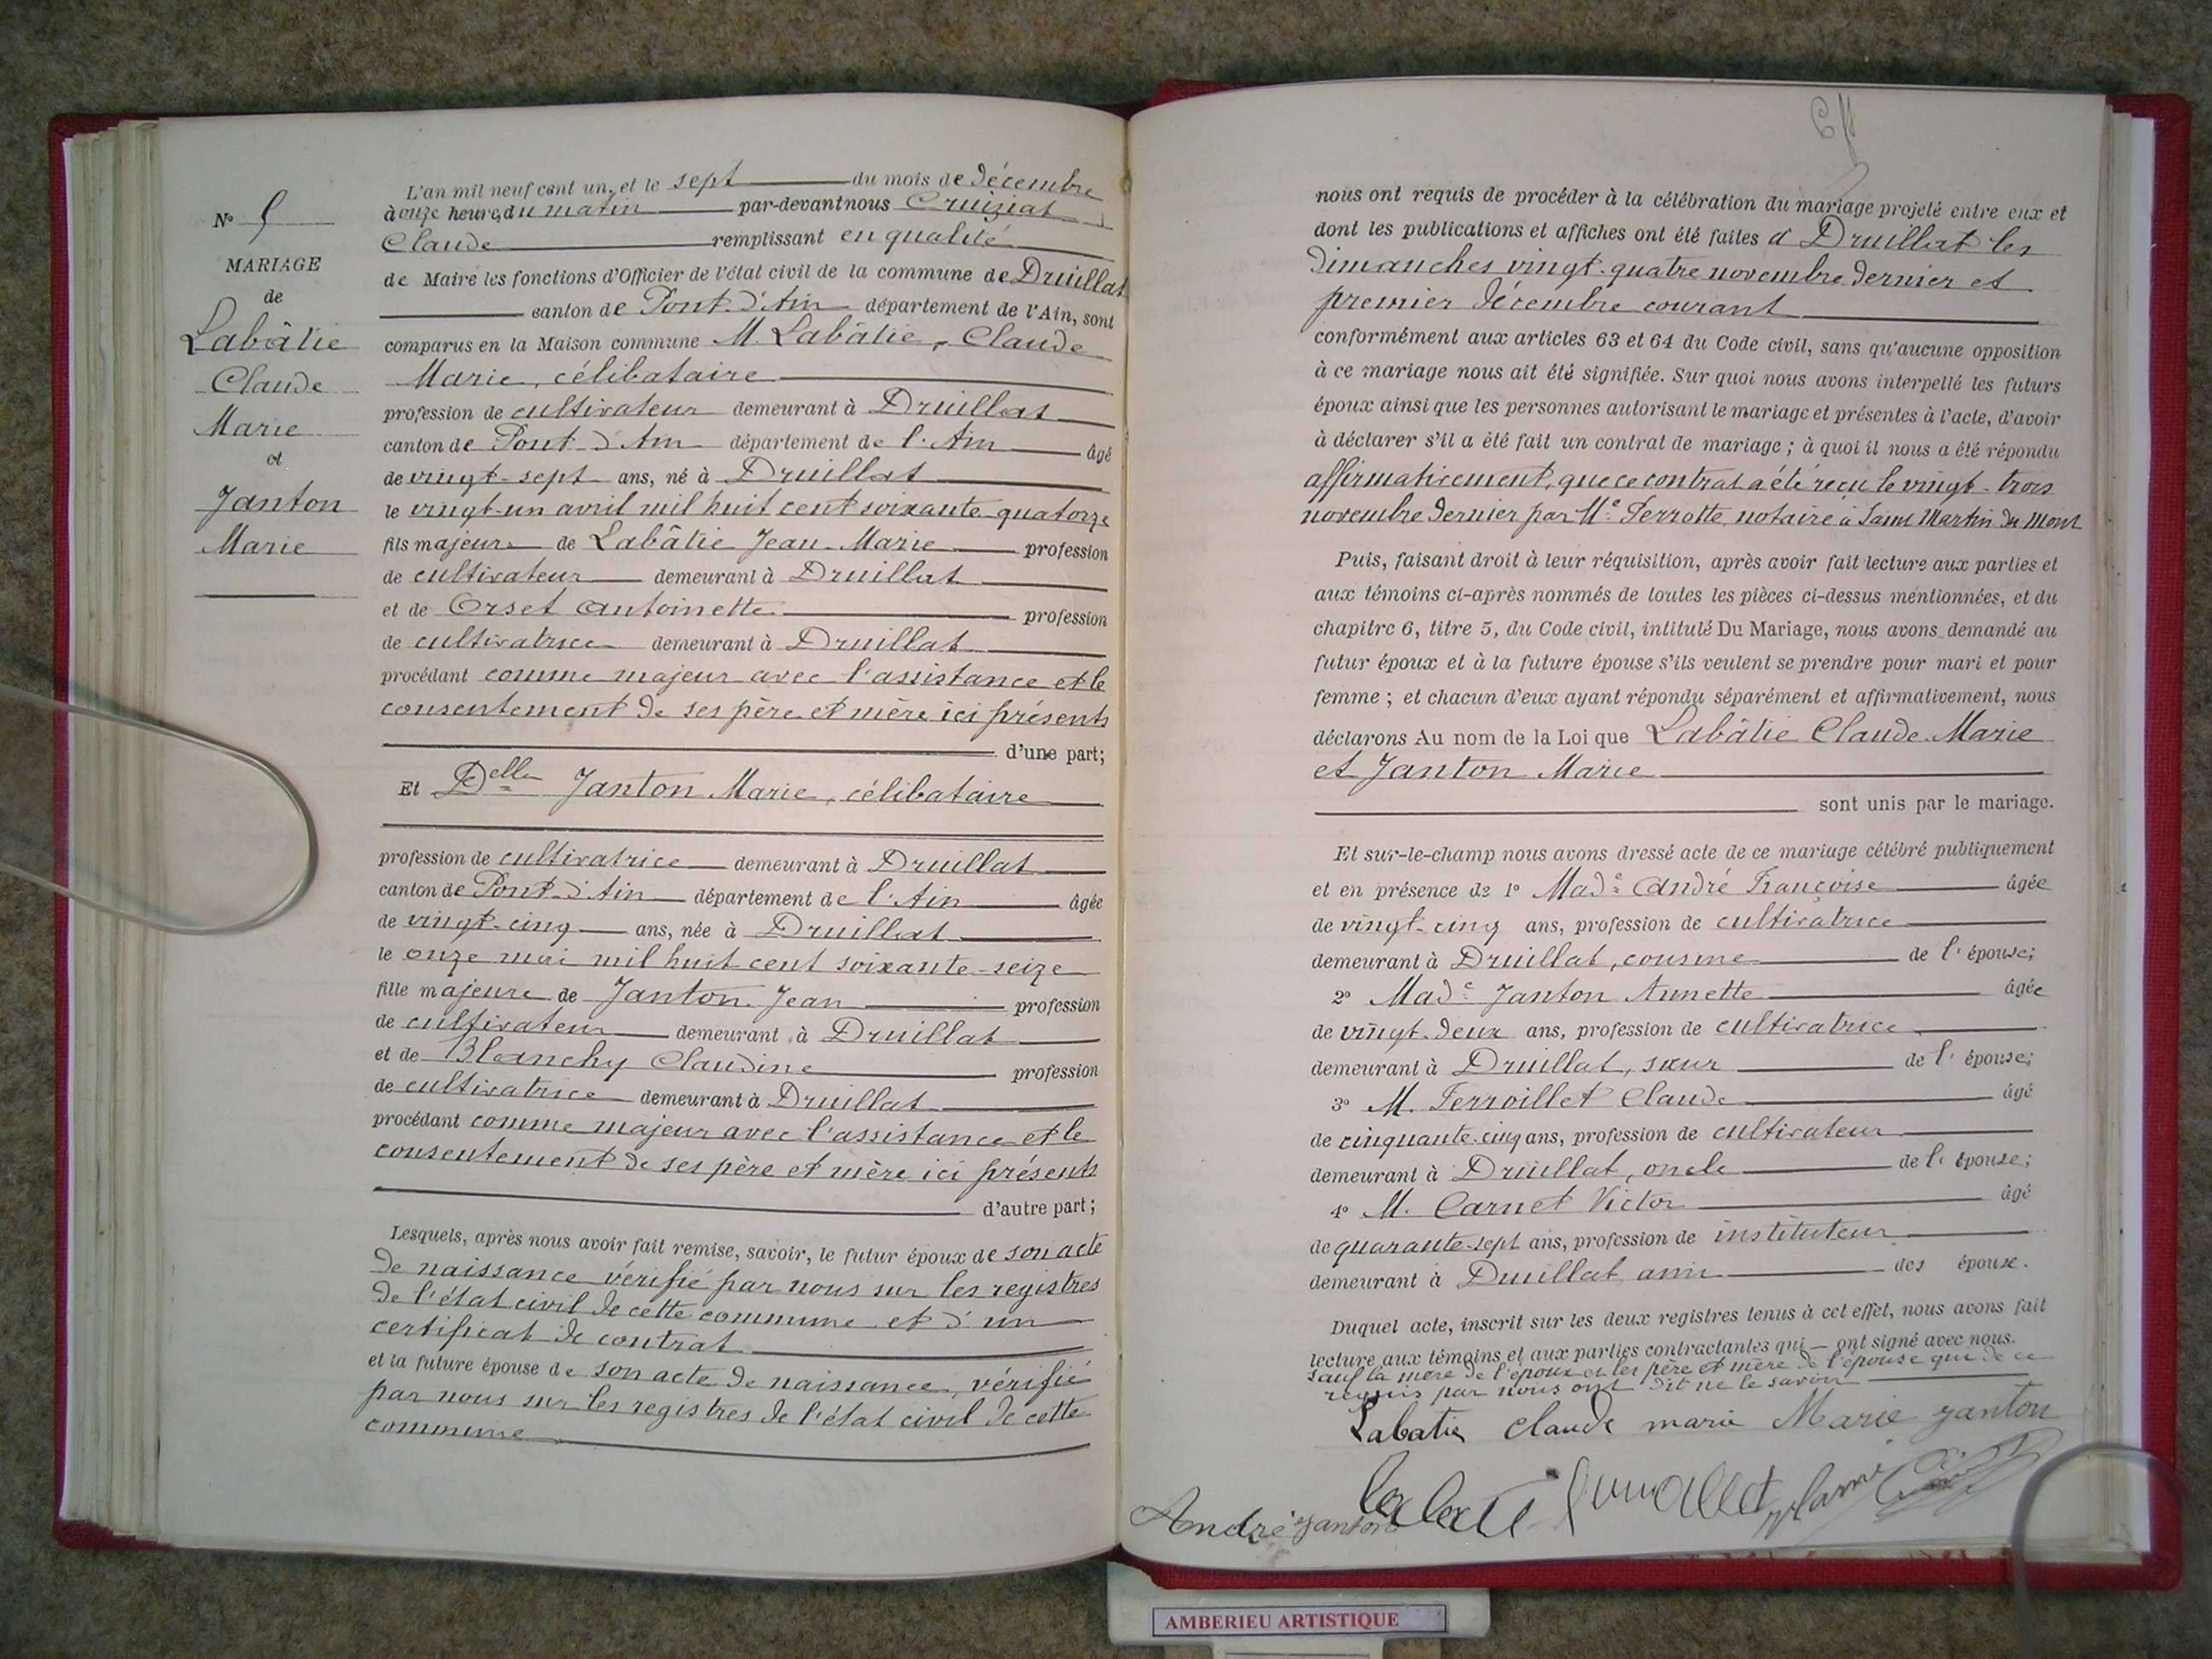 N° 5
MARIAGE
de
Labâtie
Claude
Marie
et
Janton
Marie
L'an mil neuf cent un, et le sept du mois de décembre
à onze heures du matin par-devant nous Cruiziat
Claude remplissant en qualité
de Maire les fonctions d'Officier de l'état civil de la commune de Druillat
canton de Pont-d'Ain département de l'Ain, sont
comparus en la Maison commune M. Labâtie, Claude
Marie, célibataire
profession de cultivateur demeurant à Druillat
canton de Pont-d'Ain département de l'Ain âgé
de vingt-sept ans, né à Druillat
le vingt-un avril mil huit cent soixante-quatorze
fils majeur de Labâtie Jean-Marie profession
de cultivateur demeurant à Druillat
et de Orset Antoinette profession
de cultivatrice demeurant à Druillat
procédant comme majeur avec l'assistance et le
consentement de ses père et mère ici présents
d'une part;
Et Delle Janton Marie, célibataire
profession de cultivatrice demeurant à Druillat
canton de Pont-d'Ain département de l'Ain âgée
de vingt-cinq ans, née à Druillat
le onze mai mil huit cent soixante-seize
fille majeure de Janton Jean profession
de cultivateur demeurant à Druillat
et de Blanchy Claudine profession
de cultivatrice demeurant à Druillat
procédant comme majeur avec l'assistance et le
consentement de ses père et mère ici présents
d'autre part;
Lesquels, après nous avoir fait remise, savoir, le futur époux de son acte
de naissance vérifié par nous sur les registres
de l'état civil de cette commune et d'un
certificat de contrat
et la future épouse de son acte de naissance, vérifié
par nous sur les registres de l'état civil de cette
commune
nous ont requis de procéder à la célébration du mariage projeté entre eux et
dont les publications et affiches ont été faites à Druillat les
dimanches vingt-quatre novembre dernier et
premier décembre courant
conformément aux articles 63 et 64 du Code civil, sans qu'aucune opposition
à ce mariage nous ait été signifiée. Sur quoi nous avons interpellé les futurs
époux ainsi que les personnes autorisant le mariage et présentes à l'acte, d'avoir
à déclarer s'il a été fait un contrat de mariage ; à quoi il nous a été répondu
affirmativement, que ce contrat a été reçu le vingt-trois
novembre dernier par Me Perrotte, notaire à Saint Martin du Mont
Puis, faisant droit à leur réquisition, après avoir fait lecture aux parties et
aux témoins ci-après nommés de toutes les pièces ci-dessus mentionnées, et du
chapitre 6, titre 5, du Code civil, intitulé Du Mariage, nous avons demandé au
futur époux et à la future épouse s'ils veulent se prendre pour mari et pour
femme ; et chacun d'eux ayant répondu séparément et affirmativement, nous
déclarons Au nom de la Loi que Labâtie Claude-Marie
et Janton Marie
sont unis par le mariage.
Et sur-le-champ nous avons dressé acte de ce mariage célébré publiquement
et en présence de 1° Made André Françoise âgée
de vingt-cinq ans, profession de cultivatrice
demeurant à Druillat, cousine de l'épouse;
2° Made Janton Annette âgée
de vingt-deux ans, profession de cultivatrice
demeurant à Druillat, sœur de l'épouse;
3° M. Ferroillet Claude âgé
de cinquante-cinq ans, profession de cultivateur
demeurant à Druillat, oncle de l'épouse;
4° M. Carnet Victor âgé
de quarante-sept ans, profession de instituteur
demeurant à Druillat, ami des épouse.
Duquel acte, inscrit sur les deux registres tenus à cet effet, nous avons fait
lecture aux témoins et aux parties contractantes qui ont signé avec nous.
sauf la mère de l'époux et les père et mère de l'épouse qui de ce
requis par nous ont dit ne le savoir
Labatie Claude marie Marie janton
André janton
AMBERIEU ARTISTIQUE